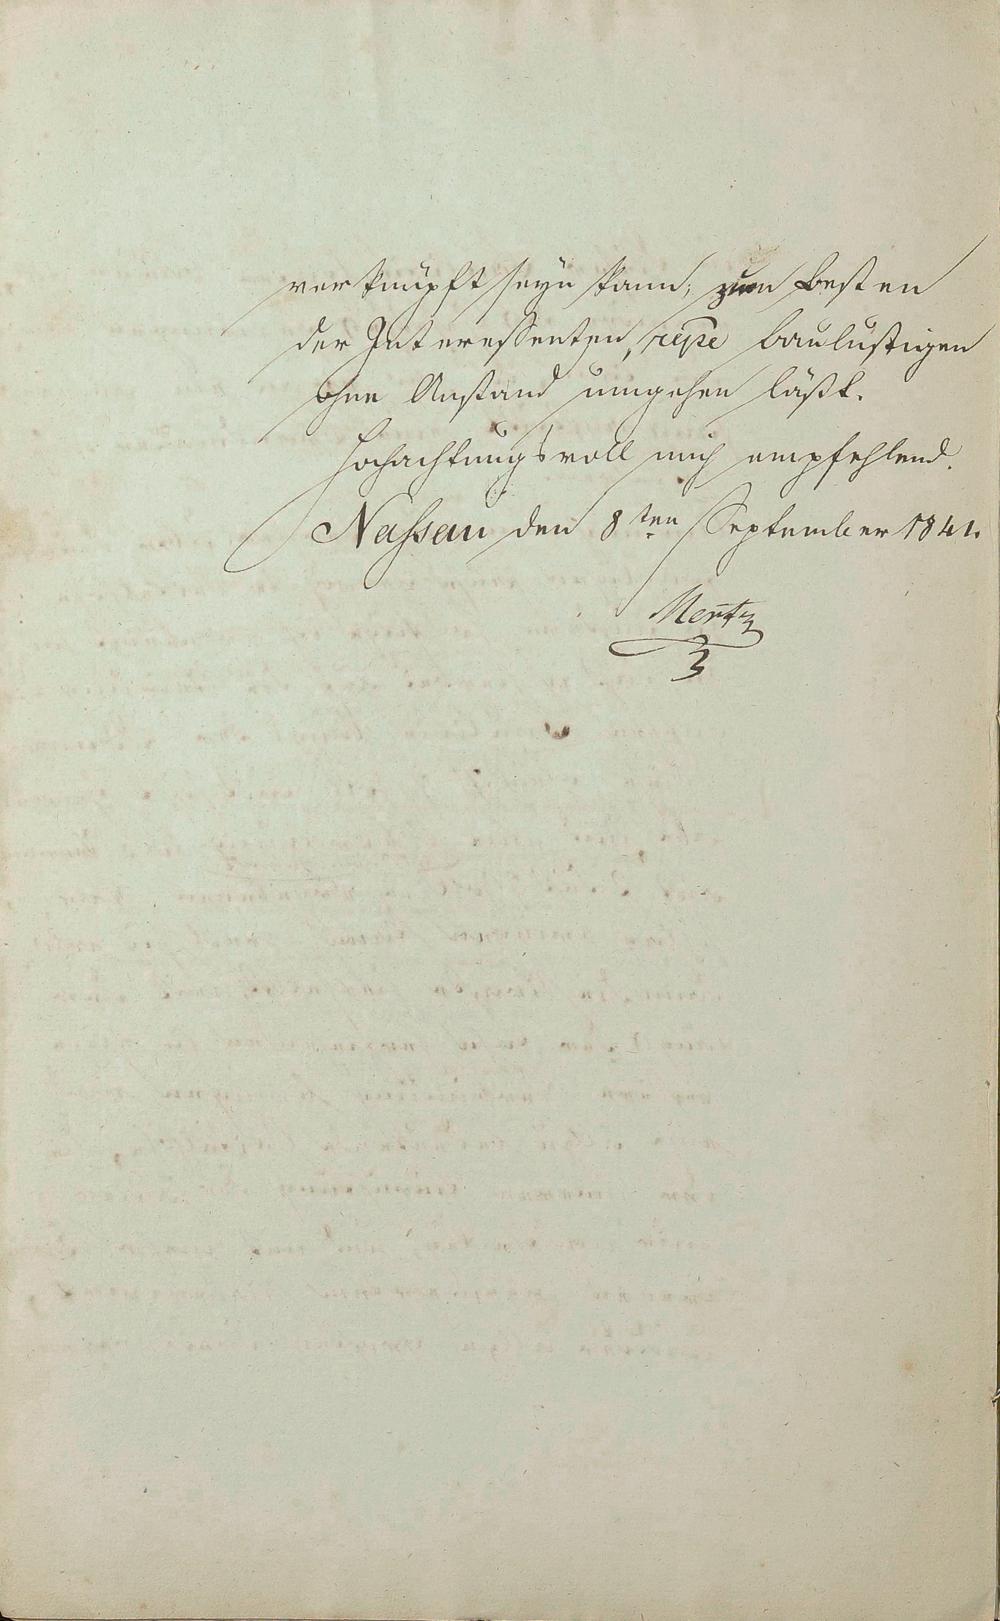 verknüpft seyn kann, zum Besten
der Interessenten, resp. Baulustigen
ohne Anstand umgehen läßt.
Hochachtungsvoll mich empfehlend.
Nassau den 8ten September 1841.
Mertz